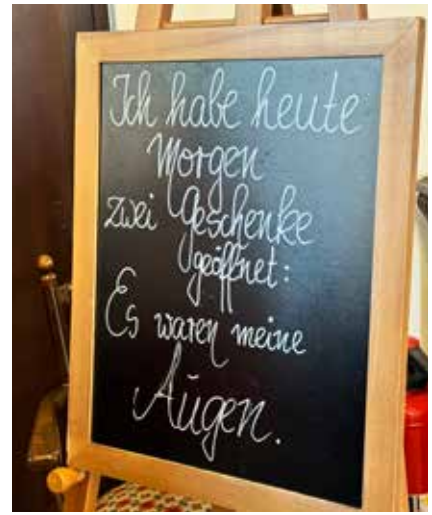 Ich habe heute
Morgen
zwei Geschenke
geöffnet:
Es waren meine
Augen.